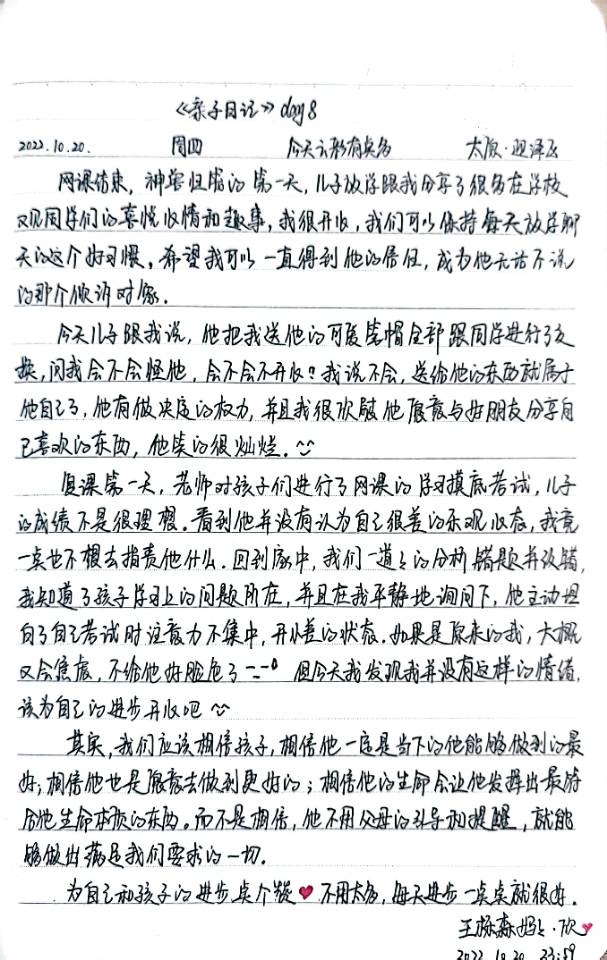 《亲子日记》day8
2022.10.20. 周四 今天云彩有点多 太原·迎泽区
网课结束，神兽归笼的第一天，儿子放学跟我分享了很多在学校
又见同学们的喜悦心情和趣事，我很开心，我们可以保持每天放学聊
天的这个好习惯。希望我可以一直得到他的信任，成为他无话不说
的那个倾诉对象.
今天儿子跟我说，他把我送他的可爱笔帽全部跟同学进行了交
换，问我会不会怪他，会不会不开心？我说不会，送给他的东西就属于
他自己了，他有做决定的权力，并且我很欣慰他愿意与好朋友分享自
己喜欢的东西，他笑的很灿烂.
复课第一天，老师对孩子们进行了网课的学习摸底考试，儿子
的成绩不是很理想.看到他并没有认为自己很差的乐观心态，我竟
一点也不想去指责他什么.回到家中，我们一道道的分析错题并改错，
我知道了孩子学习上的问题所在，并且在我平静地询问下，他主动坦
白了自己考试时注意力不集中，开小差的状态.如果是原来的我，大概
又会焦虑，不给他好脸色了 但今天我发现我并没有这样的情绪，
该为自己的进步开心吧
其实，我们应该相信孩子，相信他一定是当下的他能够做到的最
好；相信他也是愿意去做到更好的；相信他的生命会让他发挥出最符
合他生命本质的东西。而不是相信，他不用父母的引导和提醒，就能
够做出满足我们要求的一切.
为自己和孩子的进步点个赞❤不用太多，每天进步一点点就很好.
王栎森妈妈·欣❤
2022.10.20 23:59